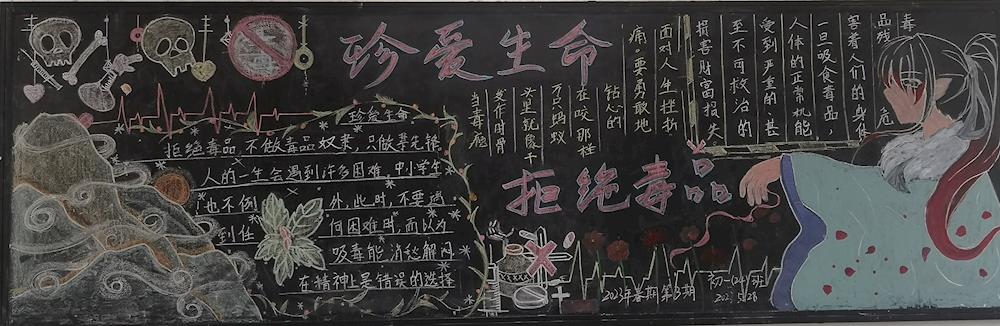 珍爱生命
拒绝毒品
毒 危
品残
害着人们的身体
一旦吸食毒品，
人体的正常机能
受到严重的、甚
至不可救治的
损害财富损失
当毒瘾
发作时骨
头里就像千
万只蚂蚁
在咬那种
钻心的
痛，要勇敢地
面对人生挫折
珍爱生命
拒绝毒品，不做毒品奴隶，只做禁先锋
人的一生会遇到许多困难，中小学生
也不例外，此时，不要遇
到任何困难时，而以为
吸毒能消愁解闷
在精神上是错误的选择
2023年春期第3期
初一(24)班
2023.5.28